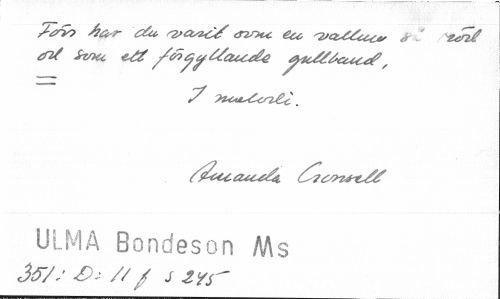 Förr har du varit som en vallmo så röd
och som ett förgyllande gullband,
I melodi.
Amanda
ULMA Bondeson Ms
351: D: 11 f s 245